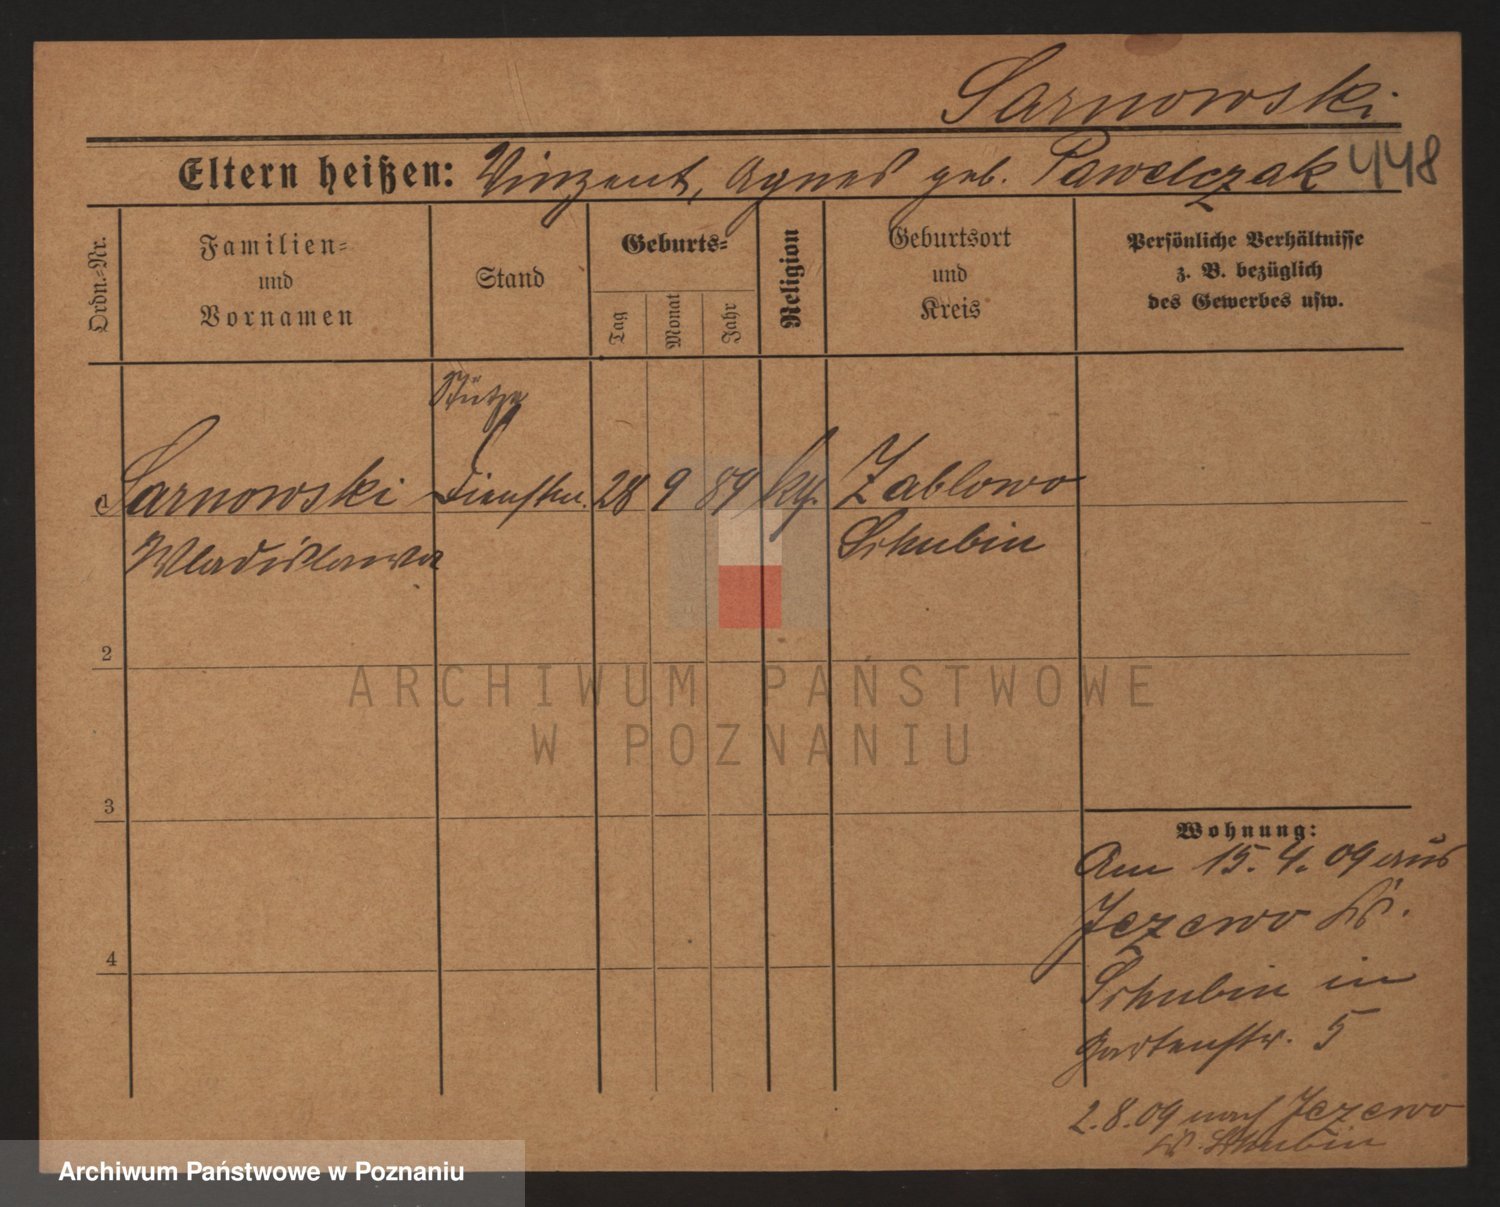 Sarnowski
Eltern heißen: Vinzent, Agnes geb. Pawelczak 448
Ordn.=Nr.
Familien=
und
Vornamen
Stand
Geburts=
Tag
Monat
Jahr
Religion
Geburtsort
und
Kreis
Persönliche Verhältnisse
z. B. bezüglich
des Gewerbes usw.
Stütze
Sarnowski Dienstm. 28 9 89 kth. Zablowo
Wladislawa Schubin
2
3
4
Wohnung:
Am 15.4.09 aus
Jezewo Kr.
Schubin in
Gartenstr. 5
2.8.09 nach Jezewo
Kr. Schubin
ARCHIWUM PAŃSTWOWE
W POZNANIU
Archiwum Państwowe w Poznaniu